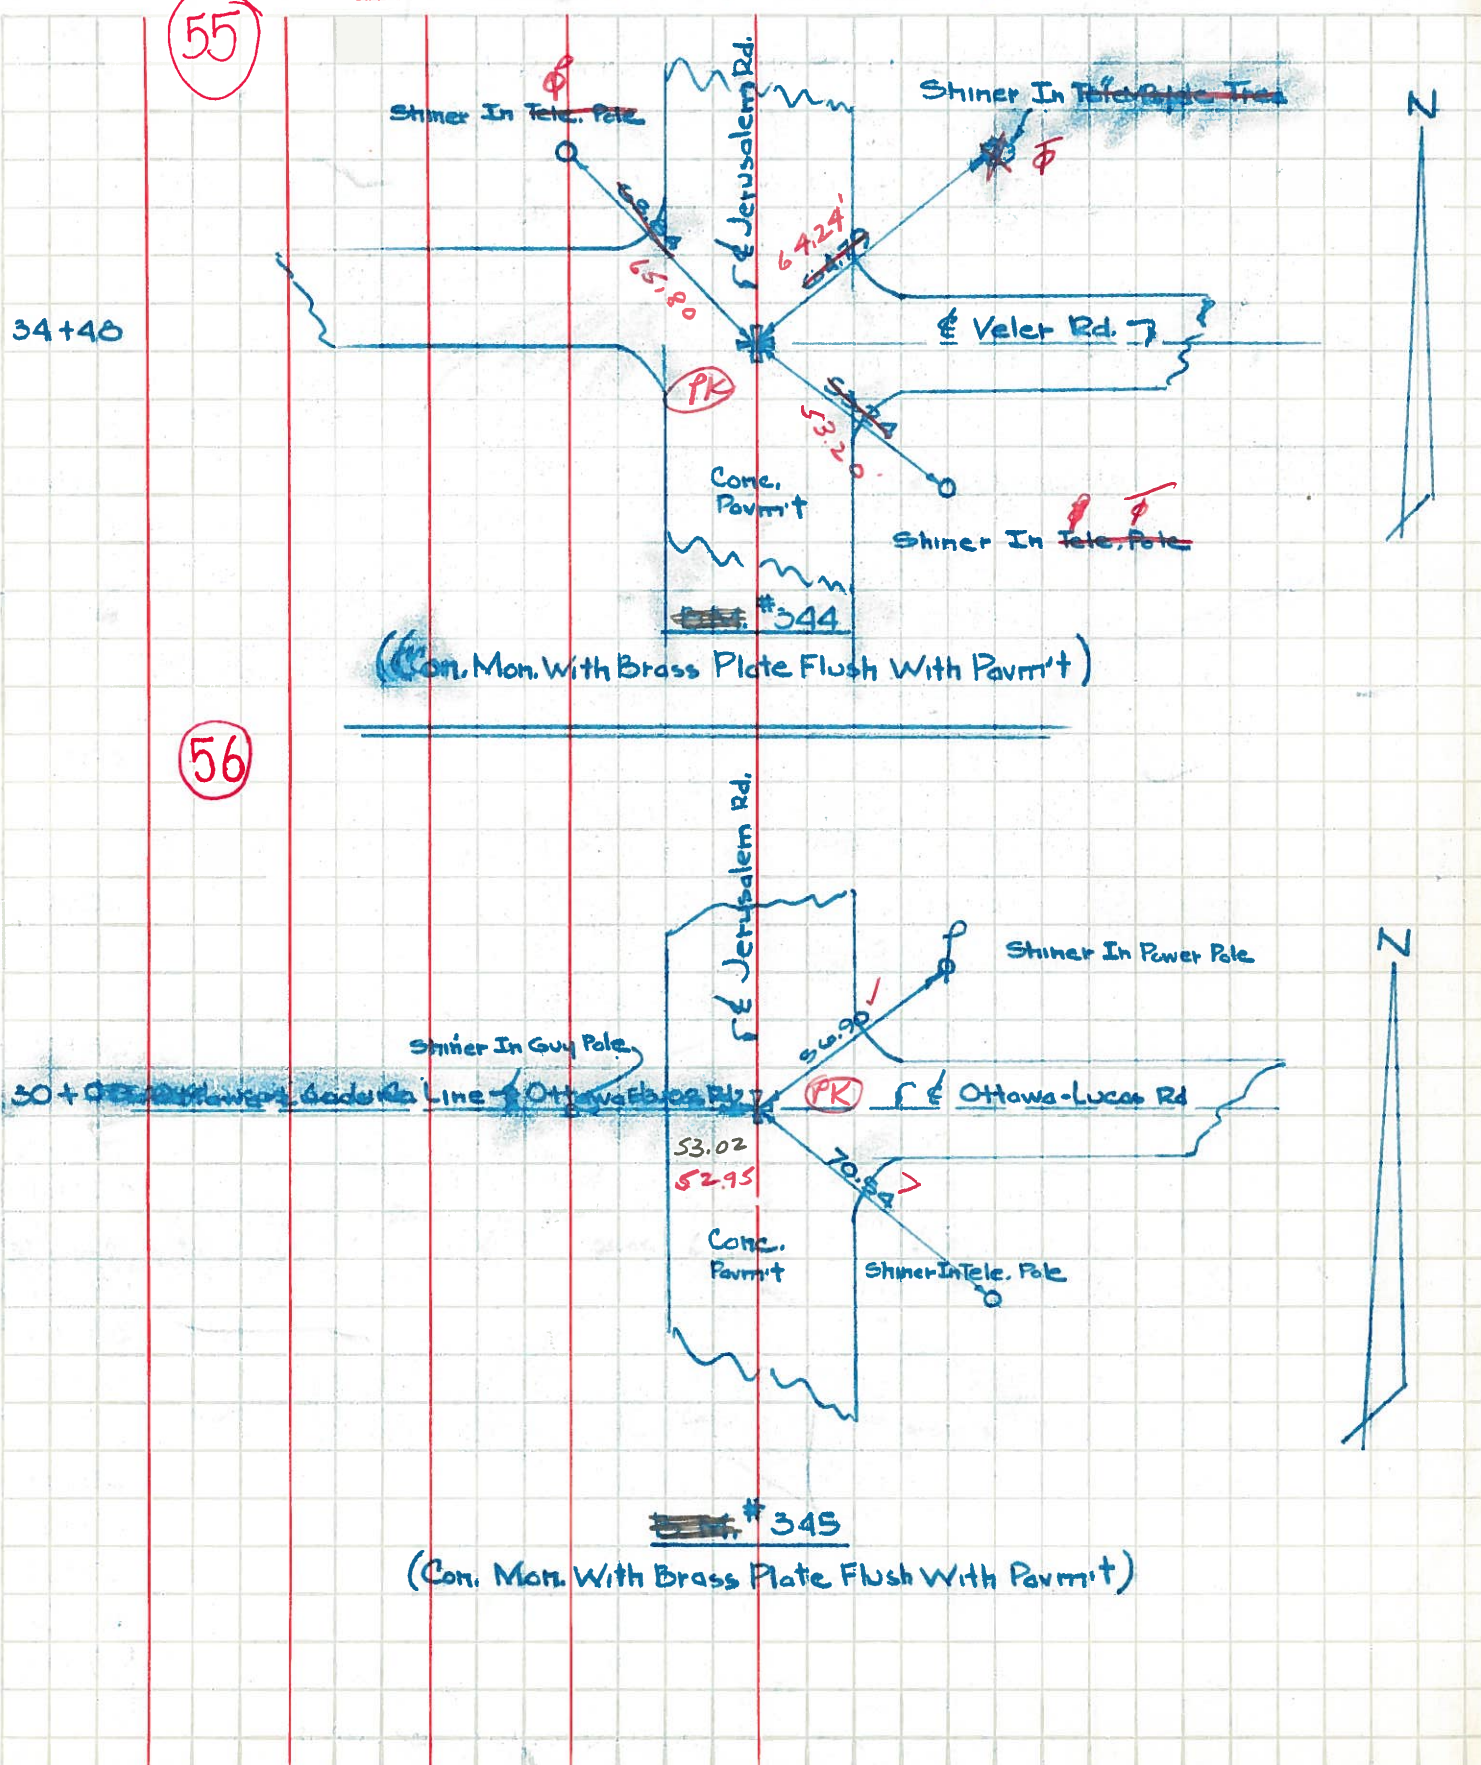 55
Shiner In Tele. Pole
Shiner In
N
℄ Jerusalem Rd.
64.24'
65.80
34+48
℄ Veler Rd.
PK
53.20
Conc.
Pavm't
Shiner In Tele. Pole
#344
(Con. Mon. With Brass Plate Flush With Pavm't)
56
℄ Jerusalem Rd.
N
Shiner In Power Pole
56.90
Shiner In Guy Pole
30+
Line
PK
℄ Ottawa-Lucas Rd
53.02
52.95
70.54
Conc.
Pavm't
Shiner In Tele. Pole
B.M. #345
(Con. Mon. With Brass Plate Flush With Pavm't)